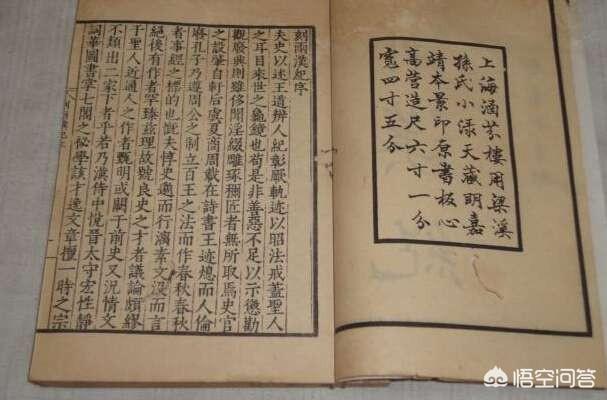 上海涵芬樓用梁溪
孫氏小淥天藏明嘉
靖本景印原書板心
高營造尺六寸一分
寬四寸五分
刻兩漢紀序
夫史以述王道辨人紀彰厥軌迹以昭法戒蓋聖人
之耳目來世之龜鏡也苟是非善惡不足以示懲勸
觀廢興則雖侈聞淫綴雕琢稱匠者無所取焉史官
之設肇自軒后虞夏商周載在詩書王迹而人倫
廢孔子乃遵周公之制立百王之法而作春秋春秋
者事經之標的也慨夫惇史邈而行漓素文沒而言
絕後有作者罕臻茲理故號良史之才者議論頗繆
于聖人近通人之作者甄明或闕于前史又況情文
不類出二家下者乎若乃漢侍中悅晉太守宏性靜
詞華圖書宰七閣之祕學該才逸文章擅一時之宗
悟空问答